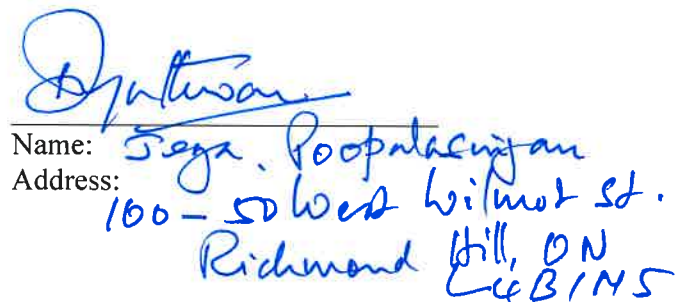 Name: Jega. Poopalasingam
Address:
100 - 50 West Wilmot St.
Richmond Hill, ON
L4B1M5